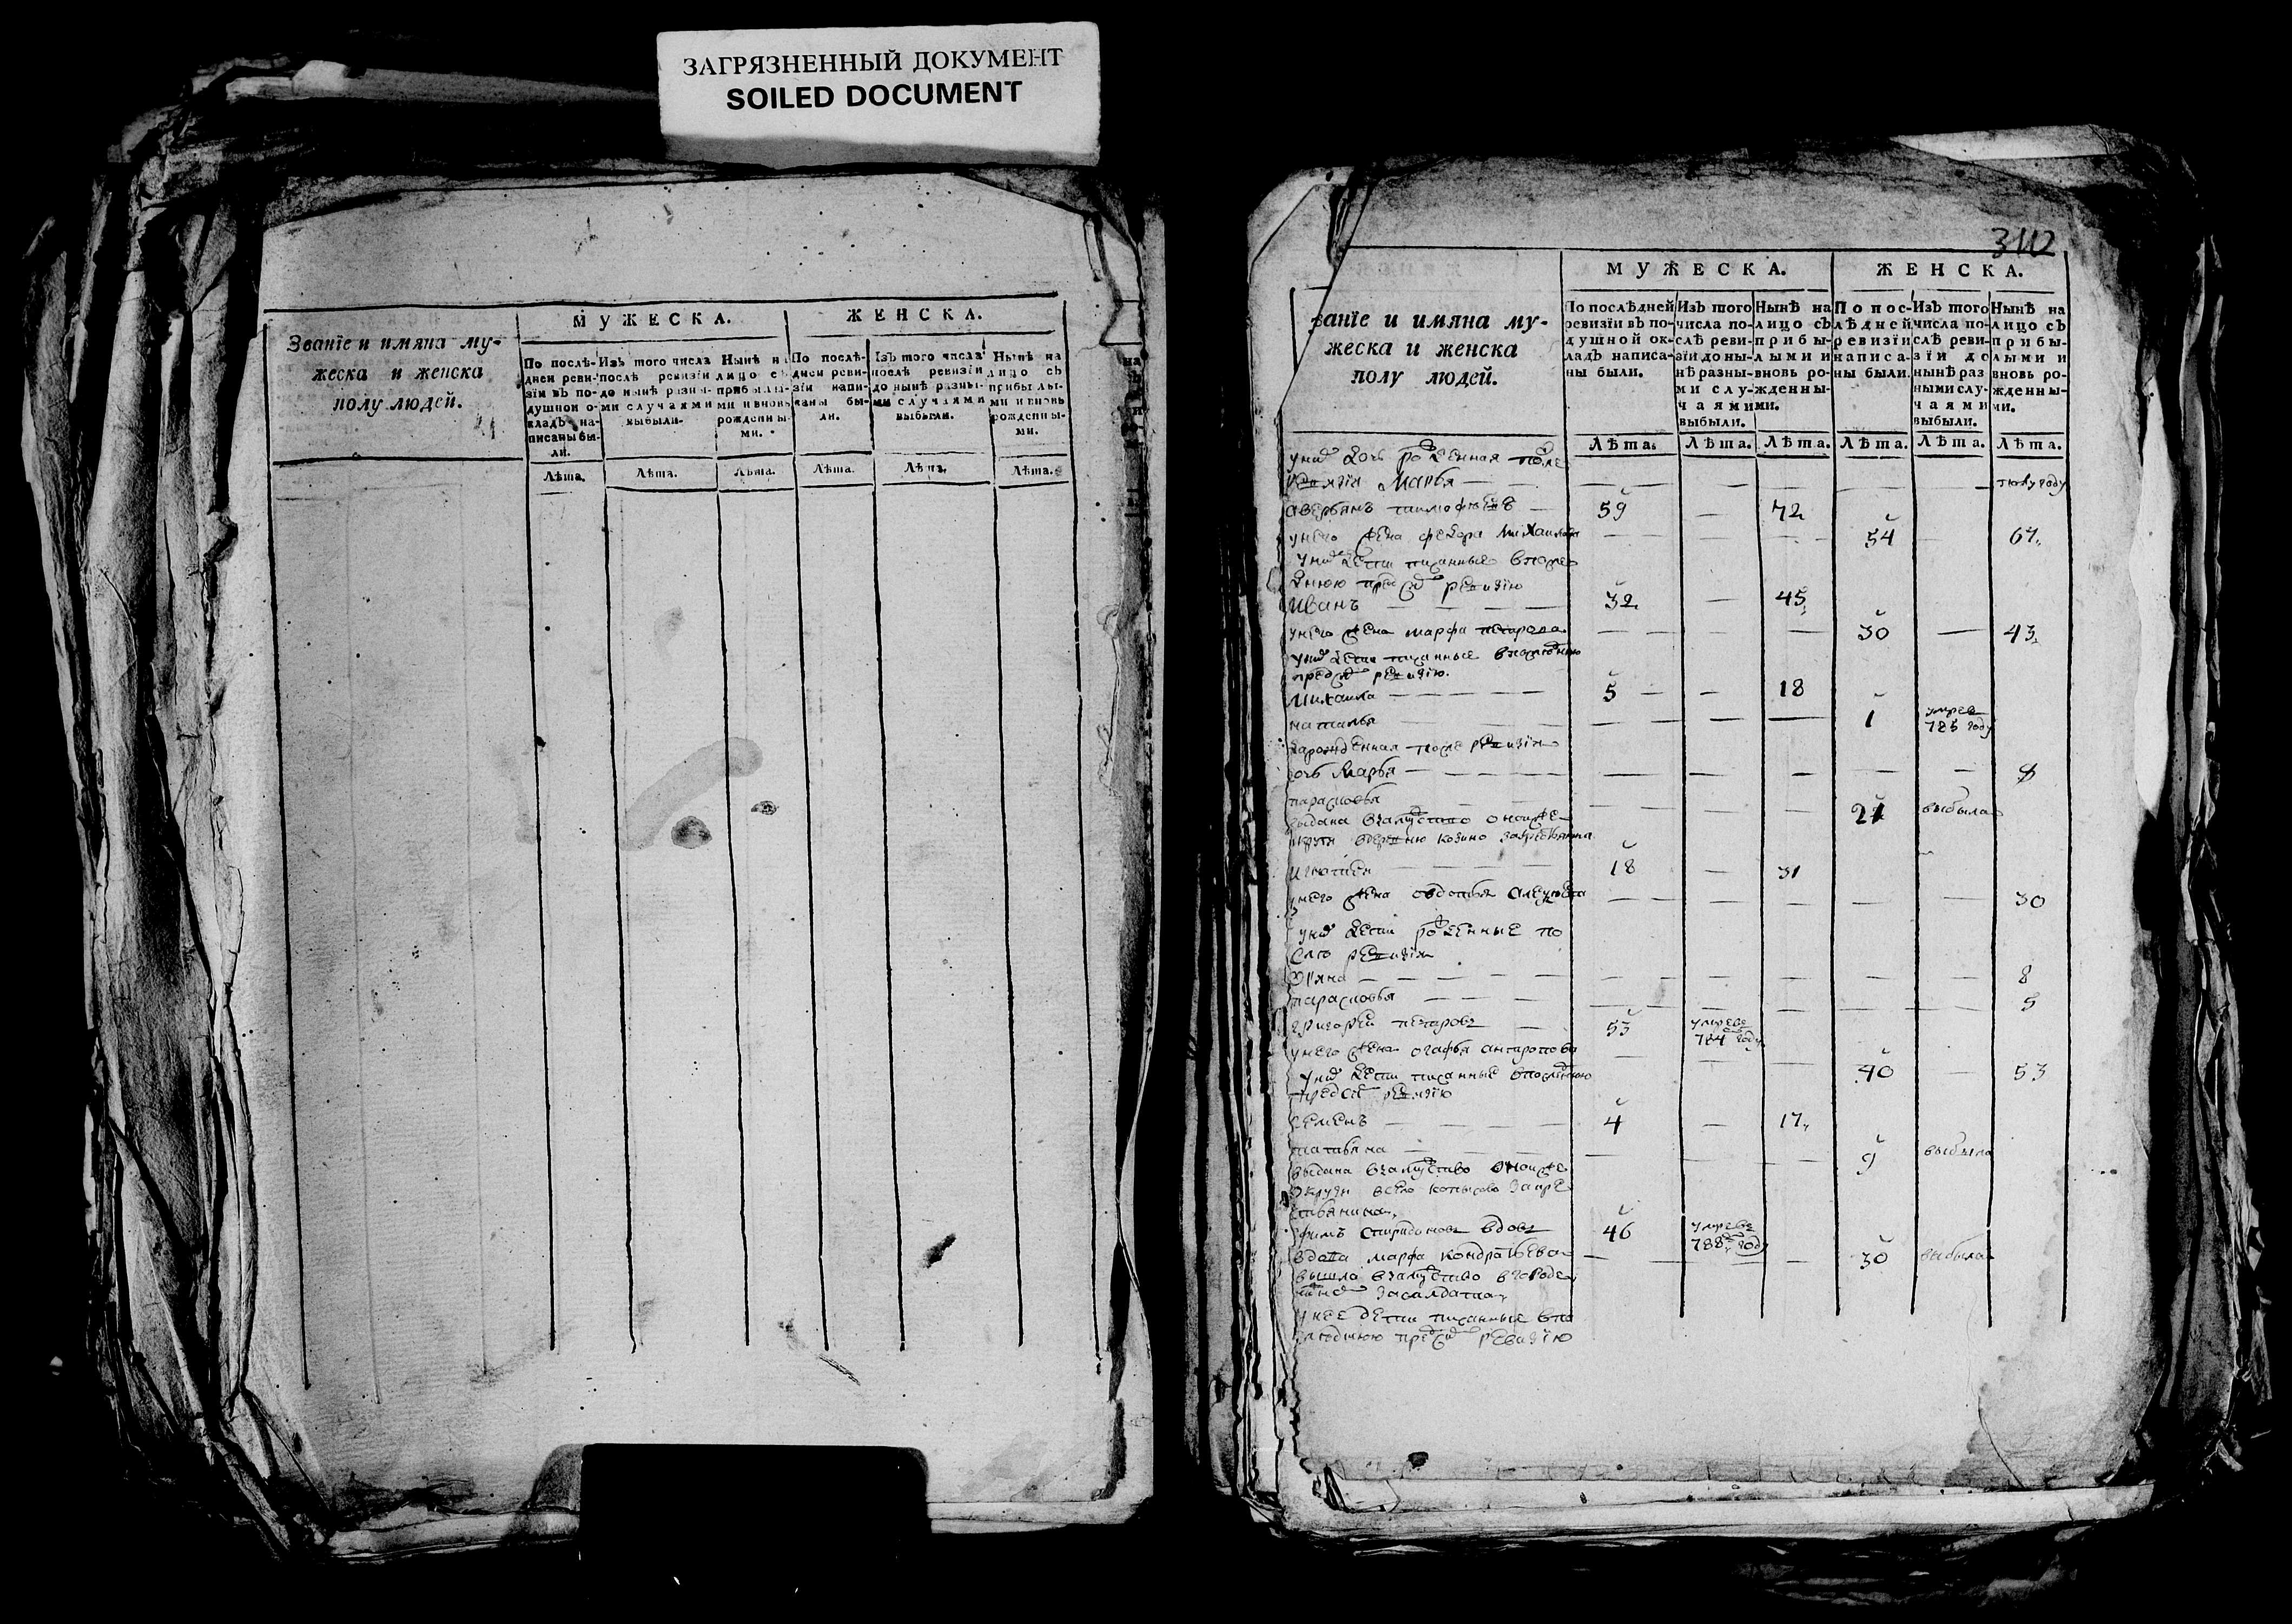 ЗАГРЯЗНЕННЫЙ ДОКУМЕНТ
SOILED DOCUMENT
Званїе и имяна му-
жеска и женска
полу людей.
МУЖЕСКА.
ЖЕНСКА.
По послѣ-
дней реви-
зїи въ по-
душной о-
кладъ на-
писаны бы-
ли.
Изъ того числа
послѣ ревизїи
до нынѣ разны-
ми случаями
выбыли.
Нынѣ на
лицо съ
прибылы-
ми и вновь
рожденны-
ми.
По послѣ-
дней реви-
зїи напи-
саны бы-
ли.
Изъ того числа
послѣ ревизїи
до нынѣ разны-
ми случаями
выбыли.
Нынѣ на
лицо съ
прибылы-
ми и вновь
рожденны-
ми.
Лѣта. Лѣта. Лѣта. Лѣта. Лѣта. Лѣта.
3112
МУЖЕСКА.
ЖЕНСКА.
званїе и имяна му-
жеска и женска
полу людей.
По послѣдней
ревизїи въ по-
душной ок-
ладъ написа-
ны были.
Изъ того
числа по-
слѣ реви-
зїи до ны-
нѣ разны-
ми слу-
чаями
выбыли.
Нынѣ на
лицо съ
прибы-
лыми и
вновь ро-
жденны-
ми.
По пос-
лѣдней
ревизїи
написа-
ны были.
Изъ того
числа по-
слѣ реви-
зїи до
нынѣ раз
ными слу-
чаями
выбыли.
Нынѣ на
лицо съ
прибы-
лыми и
вновь ро-
жденны-
ми.
Лѣта. Лѣта. Лѣта. Лѣта. Лѣта. Лѣта.
дочь рожденная после
ревизїи Марья полугоду
аверьянъ тимофеевъ 59 72
у него жена федора михайлова 54 67
дети писанные в после
днюю пред ревизию
Иванъ 32 45
у него жена марфа петрова 30 43
дети писанные в последнюю
ревизїю
Михайла 5 18
наталья 1 умре в 785 году
рожденная после ревизїи
дочь Марья 8
парасковья 21 выбыла
выдана взамужство
деревню козино за крестьянина
Игнатей 18 31
у него жена овдотья алексеева 30
дети рожденные по
сле ревизїи
Ульяна 8
парасковья 5
григорей петровъ 53 умре въ 784 году
у него жена огафья антропова 40 53
дети писанные в последнюю
ревизїю
семенъ 4 17
татьяна 9 выбыла
выдана взамужство
округи в село за кре
стьянина
ефимъ спиридоновъ вдовъ 46 умре въ 788 году
вдова марфа кондратьева 30 выбыла
вышла взамужство в городе
за салдата
у нее дети писанные в по
следнюю пред ревизїю